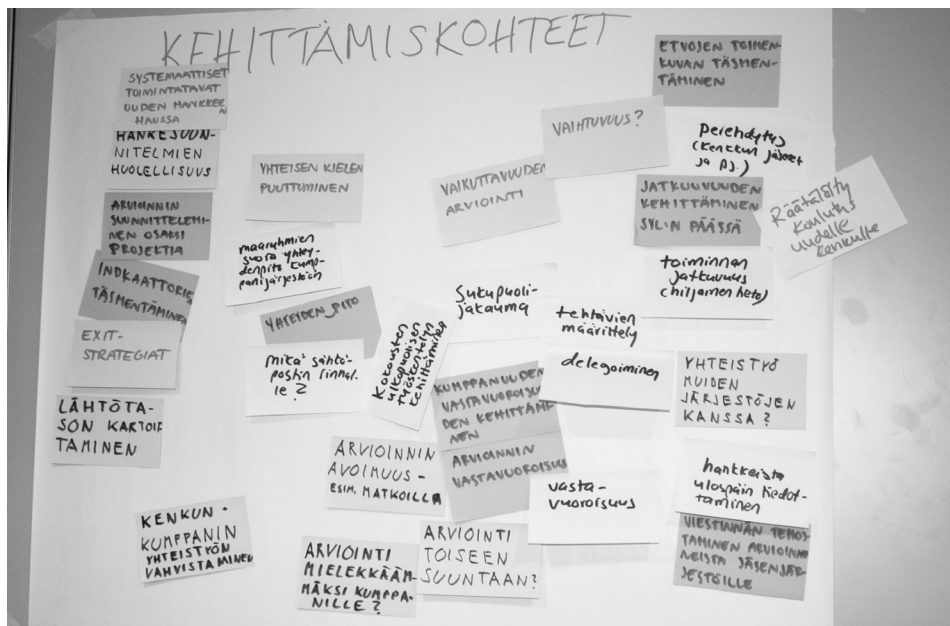 KEHITTÄMISKOHTEET
SYSTEMAATTISET
TOIMINTATAVAT
UUDEN HANKKEEN
HAUSSA
HANKESUUN-
NITELMIEN
HUOLELLISUUS
ARVIOINNIN
SUUNNITTELEMI-
NEN OSAKSI
PROJEKTIA
INDIKAATTORIEN
TÄSMENTÄMINEN
EXIT-
STRATEGIAT
LÄHTÖTA-
SON KARTOIT
TAMINEN
KENKUN -
KUMPPANIN
YHTEISTYÖN
VAHVISTAMINEN
YHTEISEN KIELEN
PUUTTUMINEN
maaryhmien
suora yhtey-
denpito kump-
panijärjestöön
YHTEYDEN_PITO
mikä sähkö-
postin rinnal-
le?
Kokousten
ulkopuolisen
työskentelyn
kehittäminen
ARVIOINNIN
AVOIMUUS -
ESIM. MATKOILLA
ARVIOINTI
MIELEKKÄÄM-
MÄKSI KUMPPA-
NILLE?
VAIKUTTAVUUDEN
ARVIOINTI
Sukupuoli-
jakauma
KUMPPANUUDEN
VASTAVUOROISUU
DEN KEHITTÄMI-
NEN
ARVIOINNIN
VASTAVUOROISUUS
ARVIOINTI
TOISEEN
SUUNTAAN?
VAIHTUVUUS?
tehtävien
määrittely
delegoiminen
vasta-
vuoroisuus
ETVOJEN TOIMEN-
KUVAN TÄSMEN-
TÄMINEN
perehdytys
(kenkun jäsenet
ja pj.)
JATKUVUUDEN
KEHITTÄMINEN
SYL:N PÄÄSSÄ
Räätälöity
koulutus
uudelle
kenkulle
toiminnan
jatkuvuus
(hiljainen tieto)
YHTEISTYÖ
MUIDEN
JÄRJESTÖJEN
KANSSA?
hankkeista
ulospäin tiedot-
taminen
VIESTINNÄN TEHOS
TAMINEN ARVIOINN
NEISTA JÄSENJÄR-
JESTÖILLE